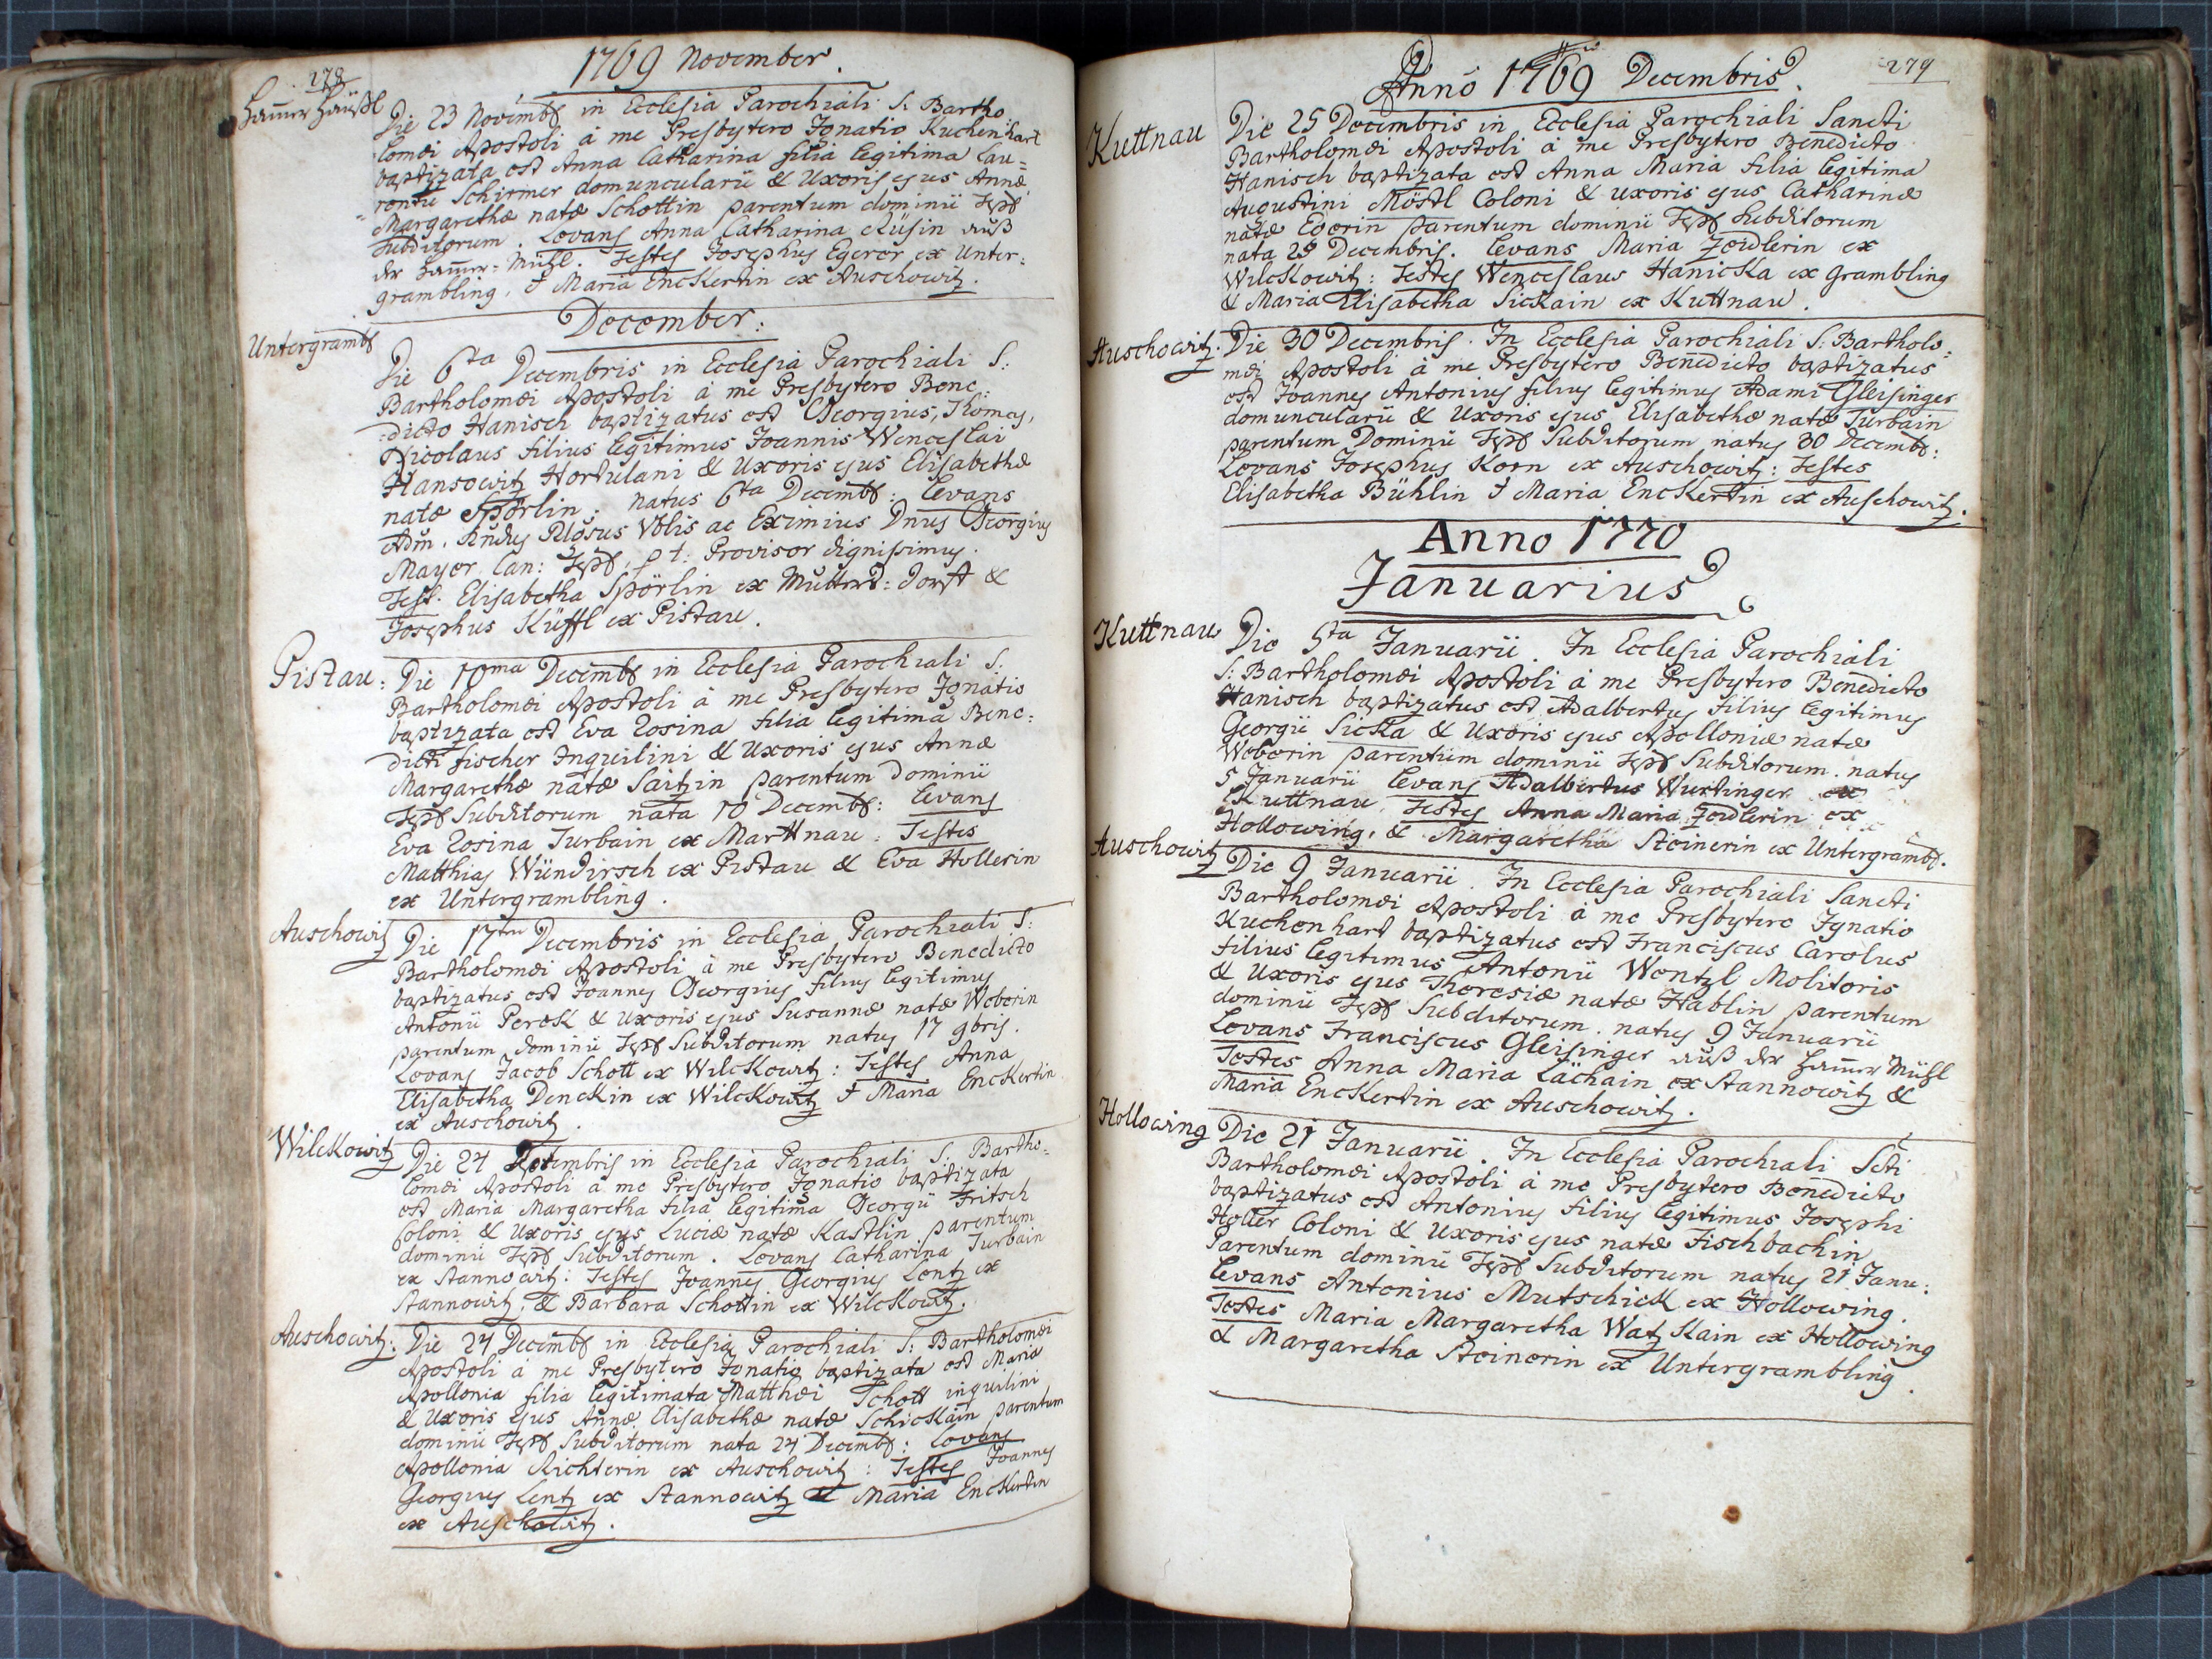 278
1769 November.
Hammer Häußl
Die 23 Novembr in Ecclesia Parochiali S: Bartho
lomæi Apostoli à me Presbytero Ignatio Kuchenhart
baptizata est Anna Catharina filia legitima Lau=
=rentii Schirmer domuncularii & Uxoris ejus Annæ
Margarethæ natæ Schottin parentum dominii Tepl
Subditorum. Levans Anna Catharina Rüsin auß
der Hammer=Mühl. Testes Josephus Egerer ex Unter:
grambling, & Maria Enckertin ex Auschowitz.
December:
Untergrambl
Die 6ta Decembris in Ecclesia Parochiali S:
Bartholomæi Apostoli à me Presbytero Bene:
:dicto Hanisch baptizatus est Georgius, Thomas,
Nicolaus filius legitimus Joannis Wenceslai
Hansowitz Hortulani & Uxoris ejus Elisabethæ
natæ Spörlin: natus 6ta Decembr: Levans
Adm. Rndus Rlosus Nblis ac Eximius Dnus Georgius
Mayer Can: Tepl. p t. Provisor dignissimus.
Test. Elisabetha Spörlin ex Mutters=dorff &
Josephus Küffl ex Pistau.
Pistau:
Die 10ma Decembr in Ecclesia Parochiali S.
Bartholomæi Apostoli à me Presbytero Ignatio
baptizata est Eva Rosina filia legitima Bene:
dicti Fischer Inquilini & Uxoris ejus Annæ
Margarethæ natæ Saitzin parentum Dominii
Tepl Subditorum nata 10 Decembr: Levans
Eva Rosina Turbain ex Marttnau: Testes
Matthias Wündirsch ex Pistau & Eva Hollerin
ex Untergrambling.
Auschowitz
Die 17ta Decembris in Ecclesia Parochiali S:
Bartholomæi Apostoli à me Presbytero Benedicto
baptizatus est Joannes Georgius filius legitimus
Antonii Perek & Uxoris ejus Susannæ natæ Weberin
parentum dominii Tepl Subditorum natus 17 9bris.
Levans Jacob Schott ex Wilckowitz: Testes Anna
Elisabetha Denckin ex Wilckowitz & Maria Enckertin
ex Auschowitz.
Wilckowitz
Die 24 Decembris in Ecclesia Parochiali S. Bartho=
lomæi Apostoli à me Presbytero Ignatio baptizata
est Maria Margaretha filia legitima Georgii Fritsch
Coloni & Uxoris ejus Luciæ natæ Kastlin parentum
dominii Tepl Subditorum. Levans Catharina Turbain
ex Stannowitz: Testes Joannes Georgius Lentz ex
Stannowitz, & Barbara Schottin ex Wilckowitz.
Auschowitz:
Die 24 Decembr in Ecclesia Parochiali S: Bartholomæi
Apostoli à me Presbytero Ignatio baptizata est Maria
Apollonia filia legitimata Matthæi Schott inquilini
& Uxoris ejus Annæ Elisabethæ natæ Schickain parentum
dominii Tepl Subditorum nata 24 Decembr: Levans
Apollonia Richterin ex Auschowitz: Testes Joannes
Georgius Lentz ex Stannowitz & Maria Enckertin
ex Auschowitz.
279
Anno 1769 Decembris.
Kuttnau
Die 25 Decembris in Ecclesia Parochiali Sancti
Bartholomæi Apostoli à me Presbytero Benedicto
Hanisch baptizata est Anna Maria filia legitima
Augustini Möstl Coloni & uxoris ejus Catharinæ
natæ Ederin parentum dominii Tepl Subditorum
nata 25 Decembris. Levans Maria Zeidlerin ex
Wilckowitz: Testes Wenceslaus Hanicka ex Grambling
& Maria Elisabetha Sickain ex Kuttnau.
Auschowitz:
Die 30 Decembris. In Ecclesia Parochiali S: Bartholo=
mæi Apostoli à me Presbytero Benedicto baptizatus
est Joannes Antonius filius legitimus Adami Gleisinger
domuncularii & Uxoris ejus Elisabethæ natæ Turbain
parentum Dominii Tepl Subditorum natus 30 Decembr:
Levans Josephus Korn ex Auschowitz: Testes
Elisabetha Bühlin & Maria Enckertin ex Auschowitz.
Anno 1770
Januarius
Kuttnau
Die 5ta Januarii. In Ecclesia Parochiali
S: Bartholomæi Apostoli à me Presbytero Benedicto
Hanisch baptizatus est Adalbertus filius legitimus
Georgii Sicka & Uxoris ejus Apolloniæ natæ
Weberin parentum dominii Tepl Subditorum. natus
5 Januarii Levans Adalbertus Wurtinger ex
Kuttnau. Testes Anna Maria Zeidlerin ex
Hollowing, & Margaretha Steinerin ex Untergrambl.
Auschowitz
Die 9 Januarii. In Ecclesia Parochiali Sancti
Bartholomæi Apostoli à me Presbytero Ignatio
Kuchenhart baptizatus est Franciscus Carolus
filius legitimus Antonii Wentzl Molitoris
& Uxoris ejus Theresiæ natæ Hablin parentum
dominii Tepl Subditorum. natus 9 Januarii
Levans Franciscus Gleisinger auß der Hammer Mühl
Testes Anna Maria Lächain ex Stannowitz &
Maria Enckertin ex Auschowitz.
Hollowing
Die 21 Januarii. In Ecclesia Parochiali Scti
Bartholomæi Apostoli à me Presbytero Benedicto
baptizatus est Antonius filius legitimus Josephi
Holler Coloni & Uxoris ejus natæ Fischbachin
Parentum dominii Tepl Subditorum natus 21 Janu:
Levans Antonius Mutschick ex Hollowing.
Testes Maria Margaretha Watzkain ex Hollowing
& Margaretha Steinerin ex Untergrambling.